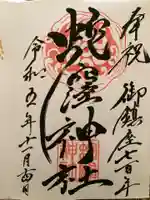 奉祝 御鎮座七百年
蛇窪神社
令和五年十一月四日